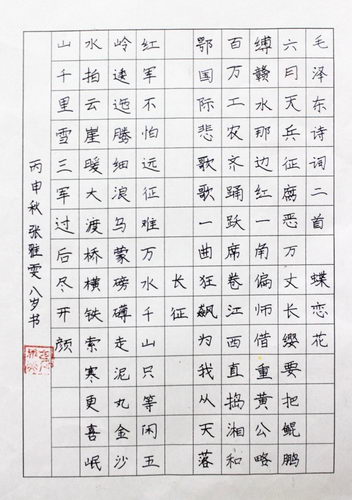 毛泽东诗词二首 蝶恋花
六月天兵征腐恶万丈长缨要把鲲鹏
缚赣水那边红一角偏师借重黄公略
百万工农齐踊跃席卷江西直捣湘和
鄂国际悲歌歌一曲狂飙为我从天落
长征
红军不怕远征难万水千山只等闲五
岭逶迤腾细浪乌蒙磅礴走泥丸金沙
水拍云崖暖大渡桥横铁索寒更喜岷
山千里雪三军过后尽开颜
丙申秋张雅雯八岁书